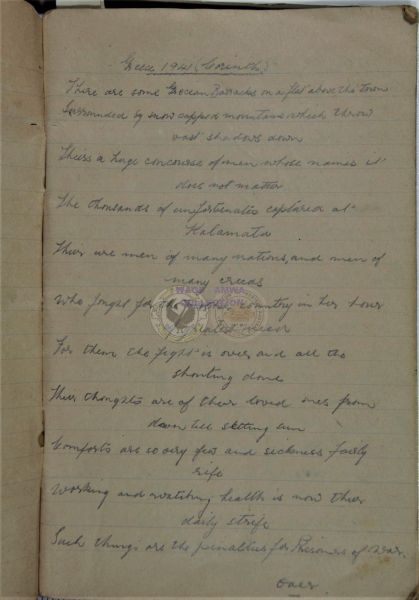 Greece 1941 (Corinth)
There are some Grecean Barracks on a flat above the town
Surrounded by snow capped mountains which throw
vast shadows down
Theirs a huge concourse of men whose names it
does not matter
The thousands of unfortunates captured at
Kalamata
Their are men of many nations, and men of
many creeds
Who fought for the country in her hour
of greatest need
For them the fight is over and all the
shouting done
Their thoughts are of their loved ones from
dawn till setting sun
Comforts are so very few and sickness fairly
rife
Working and watching health is now their
daily strife
Such things are the penalties for Prisoners of War.
Over